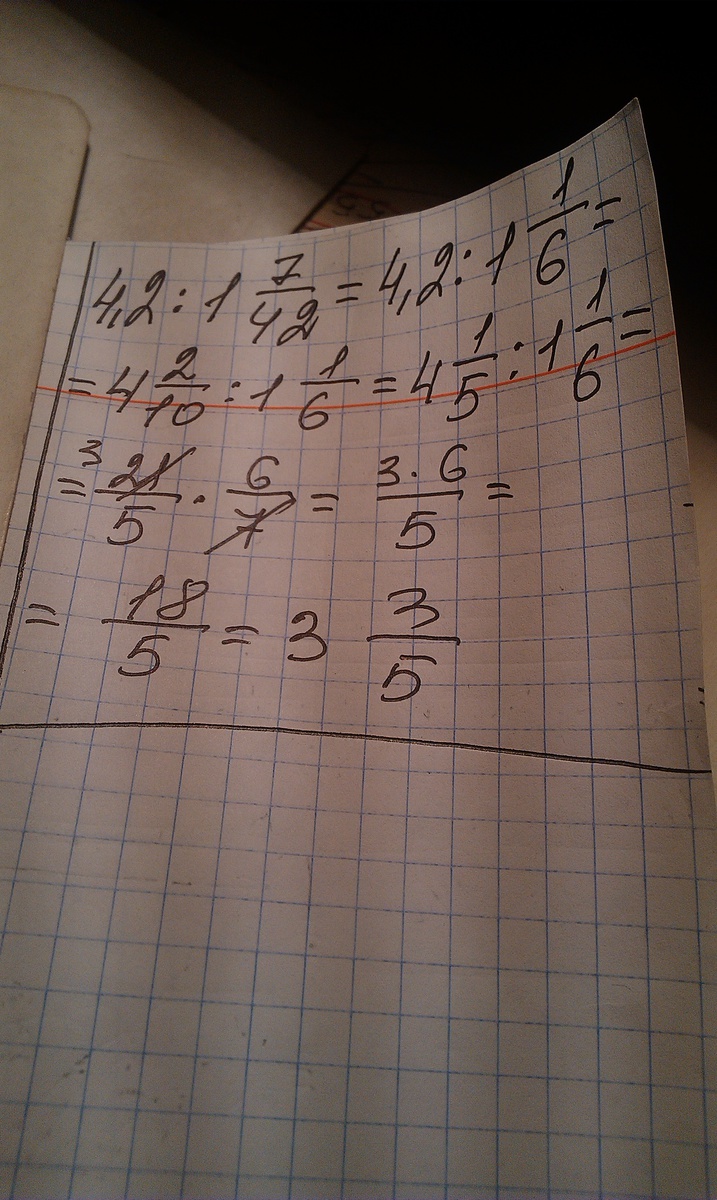 4,2 : 1 7/42 = 4,2 : 1 1/6 =
= 4 2/10 : 1 1/6 = 4 1/5 : 1 1/6 =
= 3 21/5 · 6/7 = 3 · 6/5 =
= 18/5 = 3 3/5